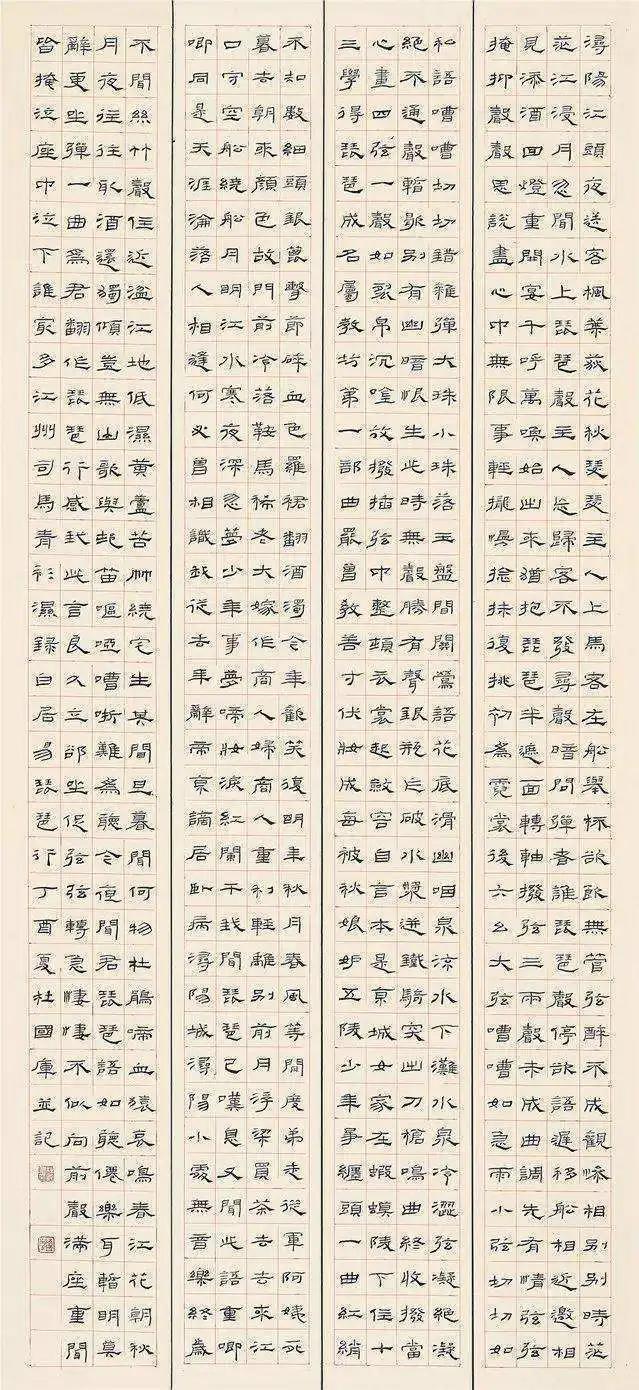 潯陽江頭夜送客楓葉荻花秋瑟瑟主人上馬客在船舉杯欲飲無管弦醉不成歡慘相別別時茫
茫江浸月忽聞水上琵琶聲主人忘歸客不發尋聲暗問彈者誰琵琶聲停欲語遲移船相近邀相
見添酒回燈重開宴千呼萬喚始出來猶抱琵琶半遮面轉軸撥弦三兩聲未成曲調先有情弦弦
掩抑聲聲思說盡心中無限事輕攏慢捻抹復挑初為霓裳後六幺大弦嘈嘈如急雨小弦切切如
私語嘈嘈切切錯雜彈大珠小珠落玉盤間關鶯語花底滑幽咽泉流水下灘水泉冷澀弦凝絕凝
絕不通聲暫歇別有幽暗恨生此時無聲勝有聲銀瓶乍破水漿迸鐵騎突出刀槍鳴曲終收撥當
心畫四弦一聲如裂帛沉吟放撥插弦中整頓衣裳起斂容自言本是京城女家在蝦蟆陵下住十
三學得琵琶成名屬教坊第一部曲罷曾教善才伏妝成每被秋娘妒五陵少年爭纏頭一曲紅綃
不知數鈿頭銀篦擊節碎血色羅裙翻酒濁今年歡笑復明年秋月春風等閒度弟走從軍阿姨死
暮去朝來顏色故門前冷落鞍馬稀老大嫁作商人婦商人重利輕離別前月浮梁買茶去去來江
口守空船繞船月明江水寒夜深忽夢少年事夢啼妝淚紅闌干我聞琵琶已嘆息又聞此語重唧
唧同是天涯淪落人相逢何必曾相識我從去年辭帝京謫居臥病潯陽城潯陽小處無音樂終歲
不聞絲竹聲住近湓江地低濕黃蘆苦竹繞宅生其間旦暮聞何物杜鵑啼血猿哀鳴春江花朝秋
月夜往往取酒還獨傾豈無山歌與村笛嘔啞嘲哳難為聽今夜聞君琵琶語如聽僊樂耳暫明莫
辭更坐彈一曲為君翻作琵琶行感我此言良久立卻坐促弦弦轉急淒淒不似向前聲滿座重聞
皆掩泣座中泣下誰最多江州司馬青衫濕錄白居易琵琶行丁酉夏杜國庫並記